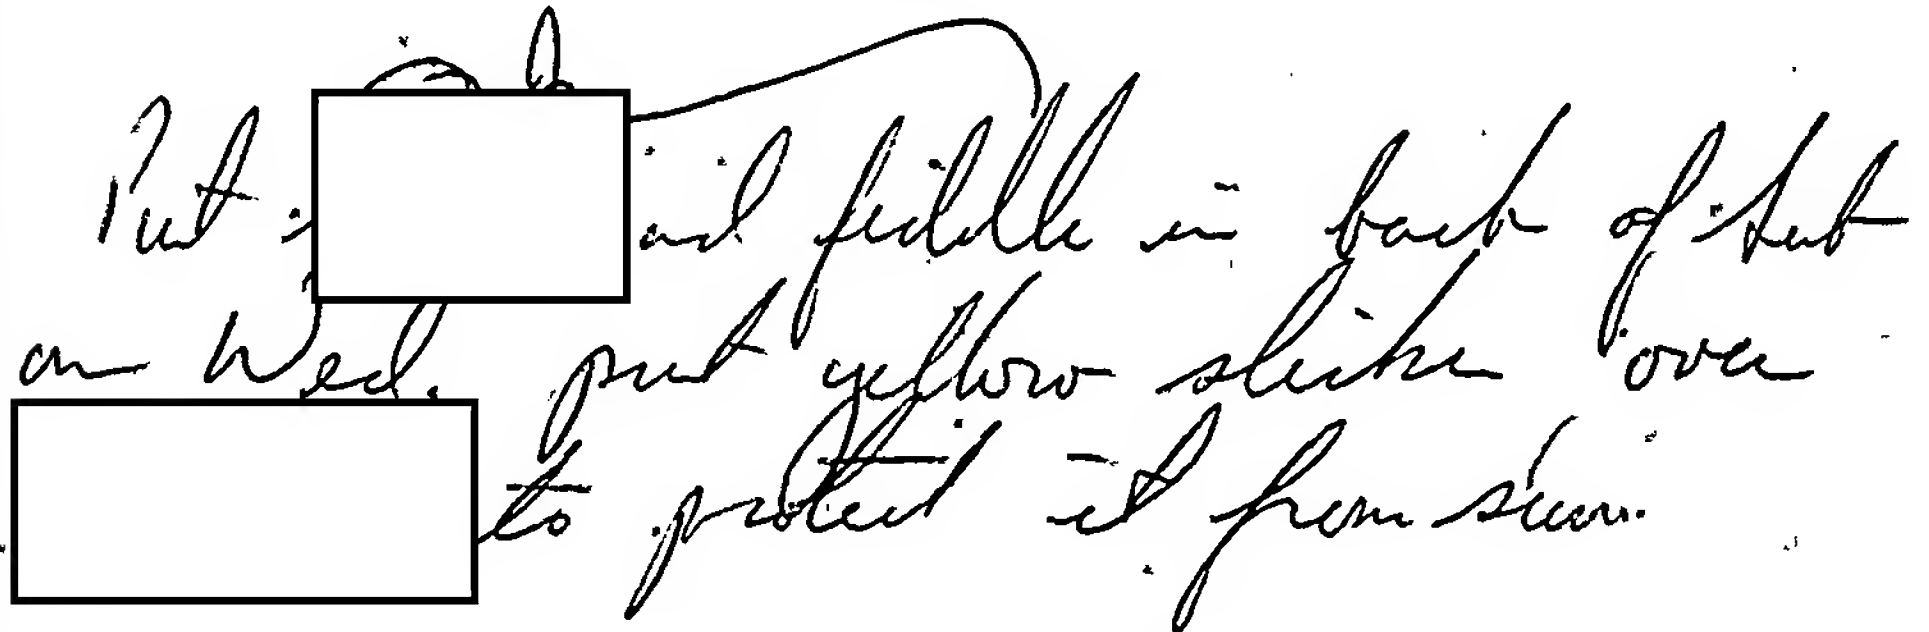 Put and fiddle in back of tub
on Wed. put yellow slicker over
to protect it from sun.